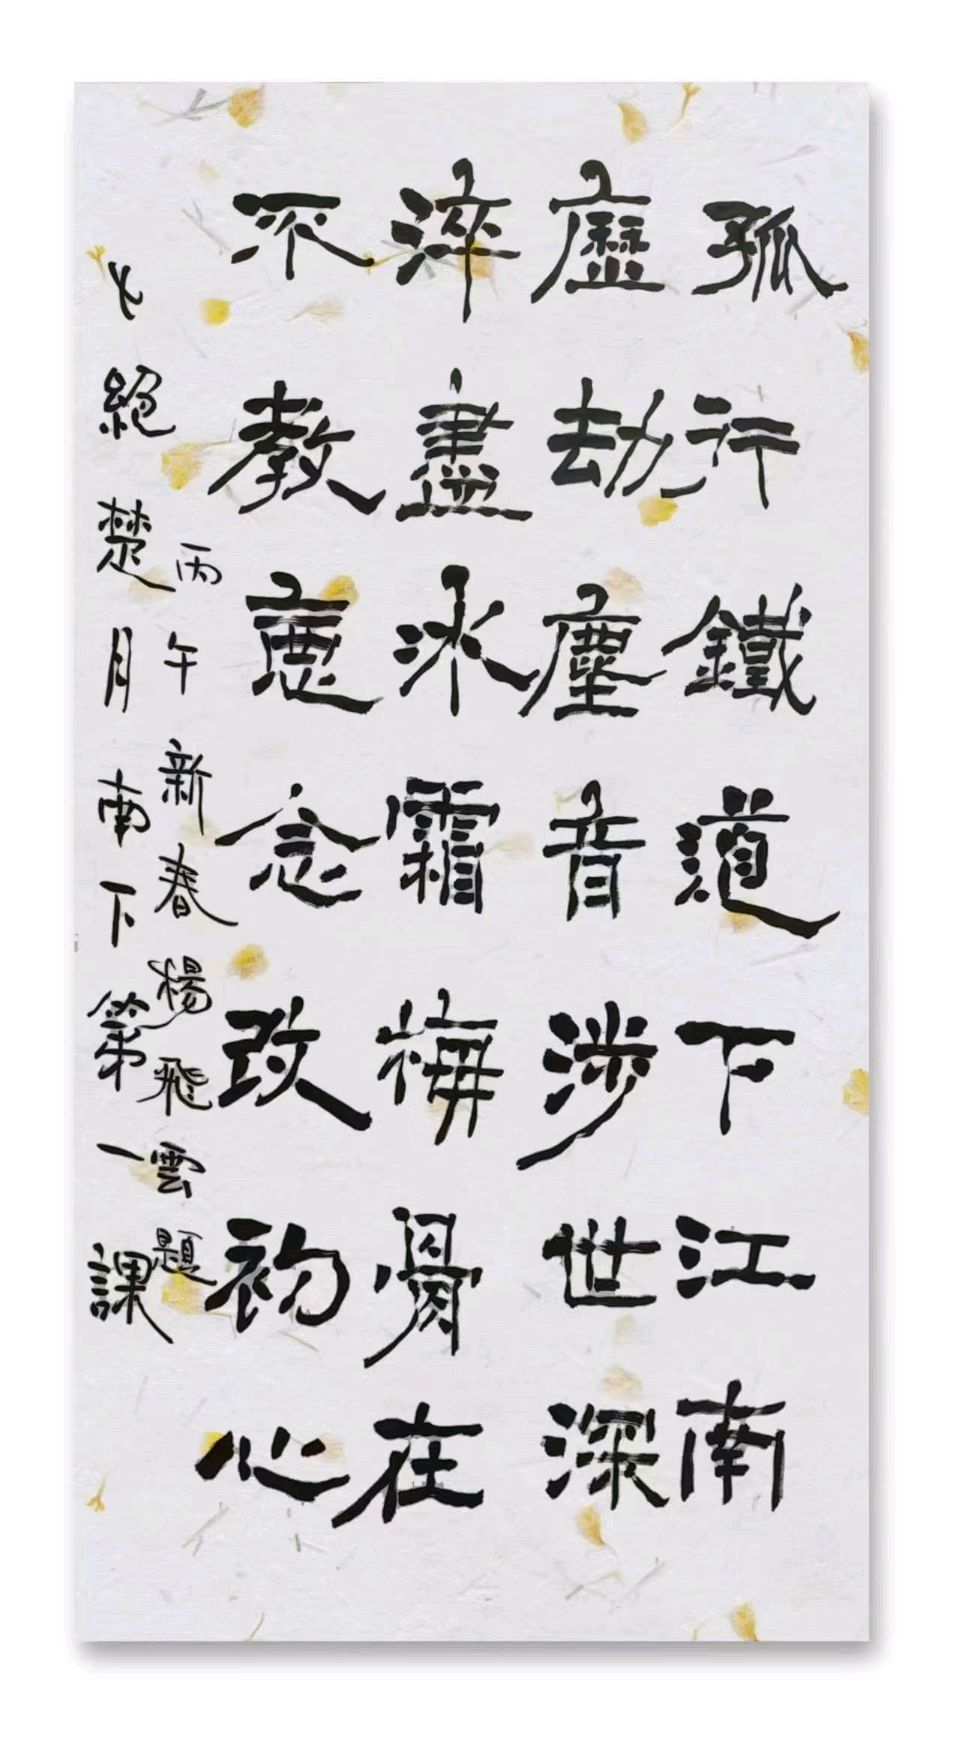 孤行鐵道下江南
歷劫塵音涉世深
淬盡冰霜梅骨在
不教念改初心
七絕楚月南下第一課
丙午新春楊飛雲題